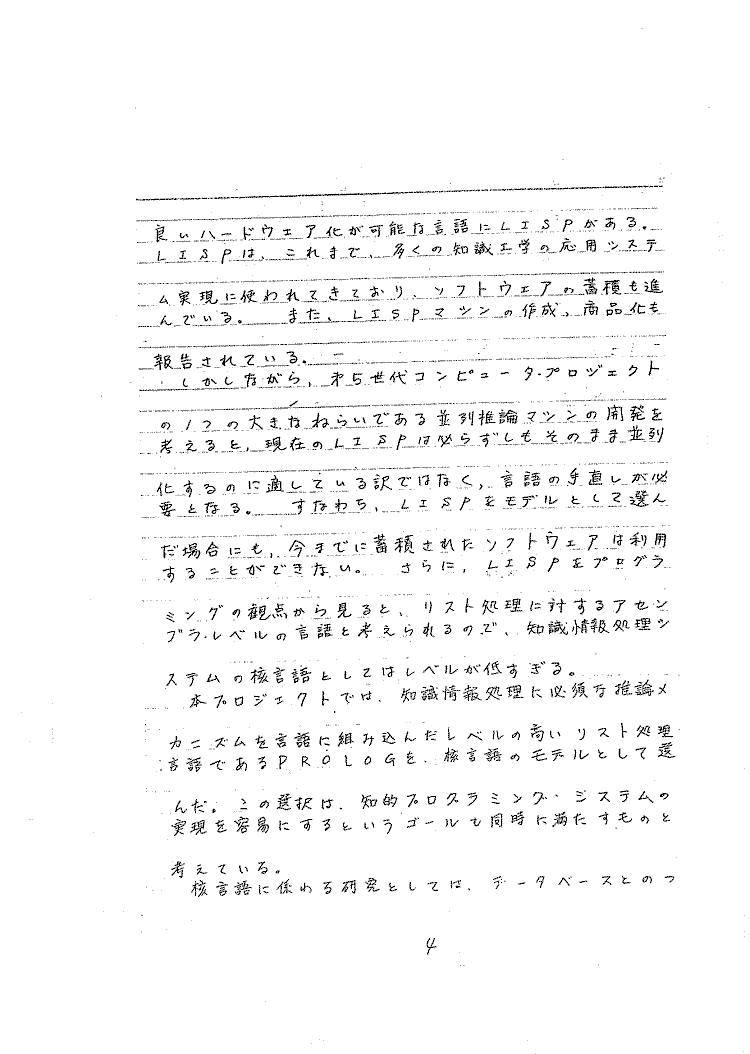 良いハードウェア化が可能な言語にLISPがある。
LISPは、これまで、多くの知識工学の応用システ
ム実現に使われてきており、ソフトウェアの蓄積も進
んでいる。　また、LISPマシンの作成、商品化も
報告されている。
しかしながら、第5世代コンピュータ・プロジェクト
の1つの大きなねらいである並列推論マシンの開発を
考えると、現在のLISPは必らずしもそのまま並列
化するのに適している訳ではなく、言語の手直しが必
要となる。　すなわち、LISPをモデルとして選ん
だ場合にも、今までに蓄積されたソフトウェアは利用
することができない。　さらに、LISPをプログラ
ミングの観点から見ると、リスト処理に対するアセン
ブラ・レベルの言語と考えられるので、知識情報処理シ
ステムの核言語としてはレベルが低すぎる。
本プロジェクトでは、知識情報処理に必須な推論メ
カニズムを言語に組み込んだレベルの高いリスト処理
言語であるPROLOGを、核言語のモデルとして選
んだ。この選択は、知的プログラミング・システムの
実現を容易にするというゴールも同時に満たすものと
考えている。
核言語に係わる研究としては、データベースとのつ
4